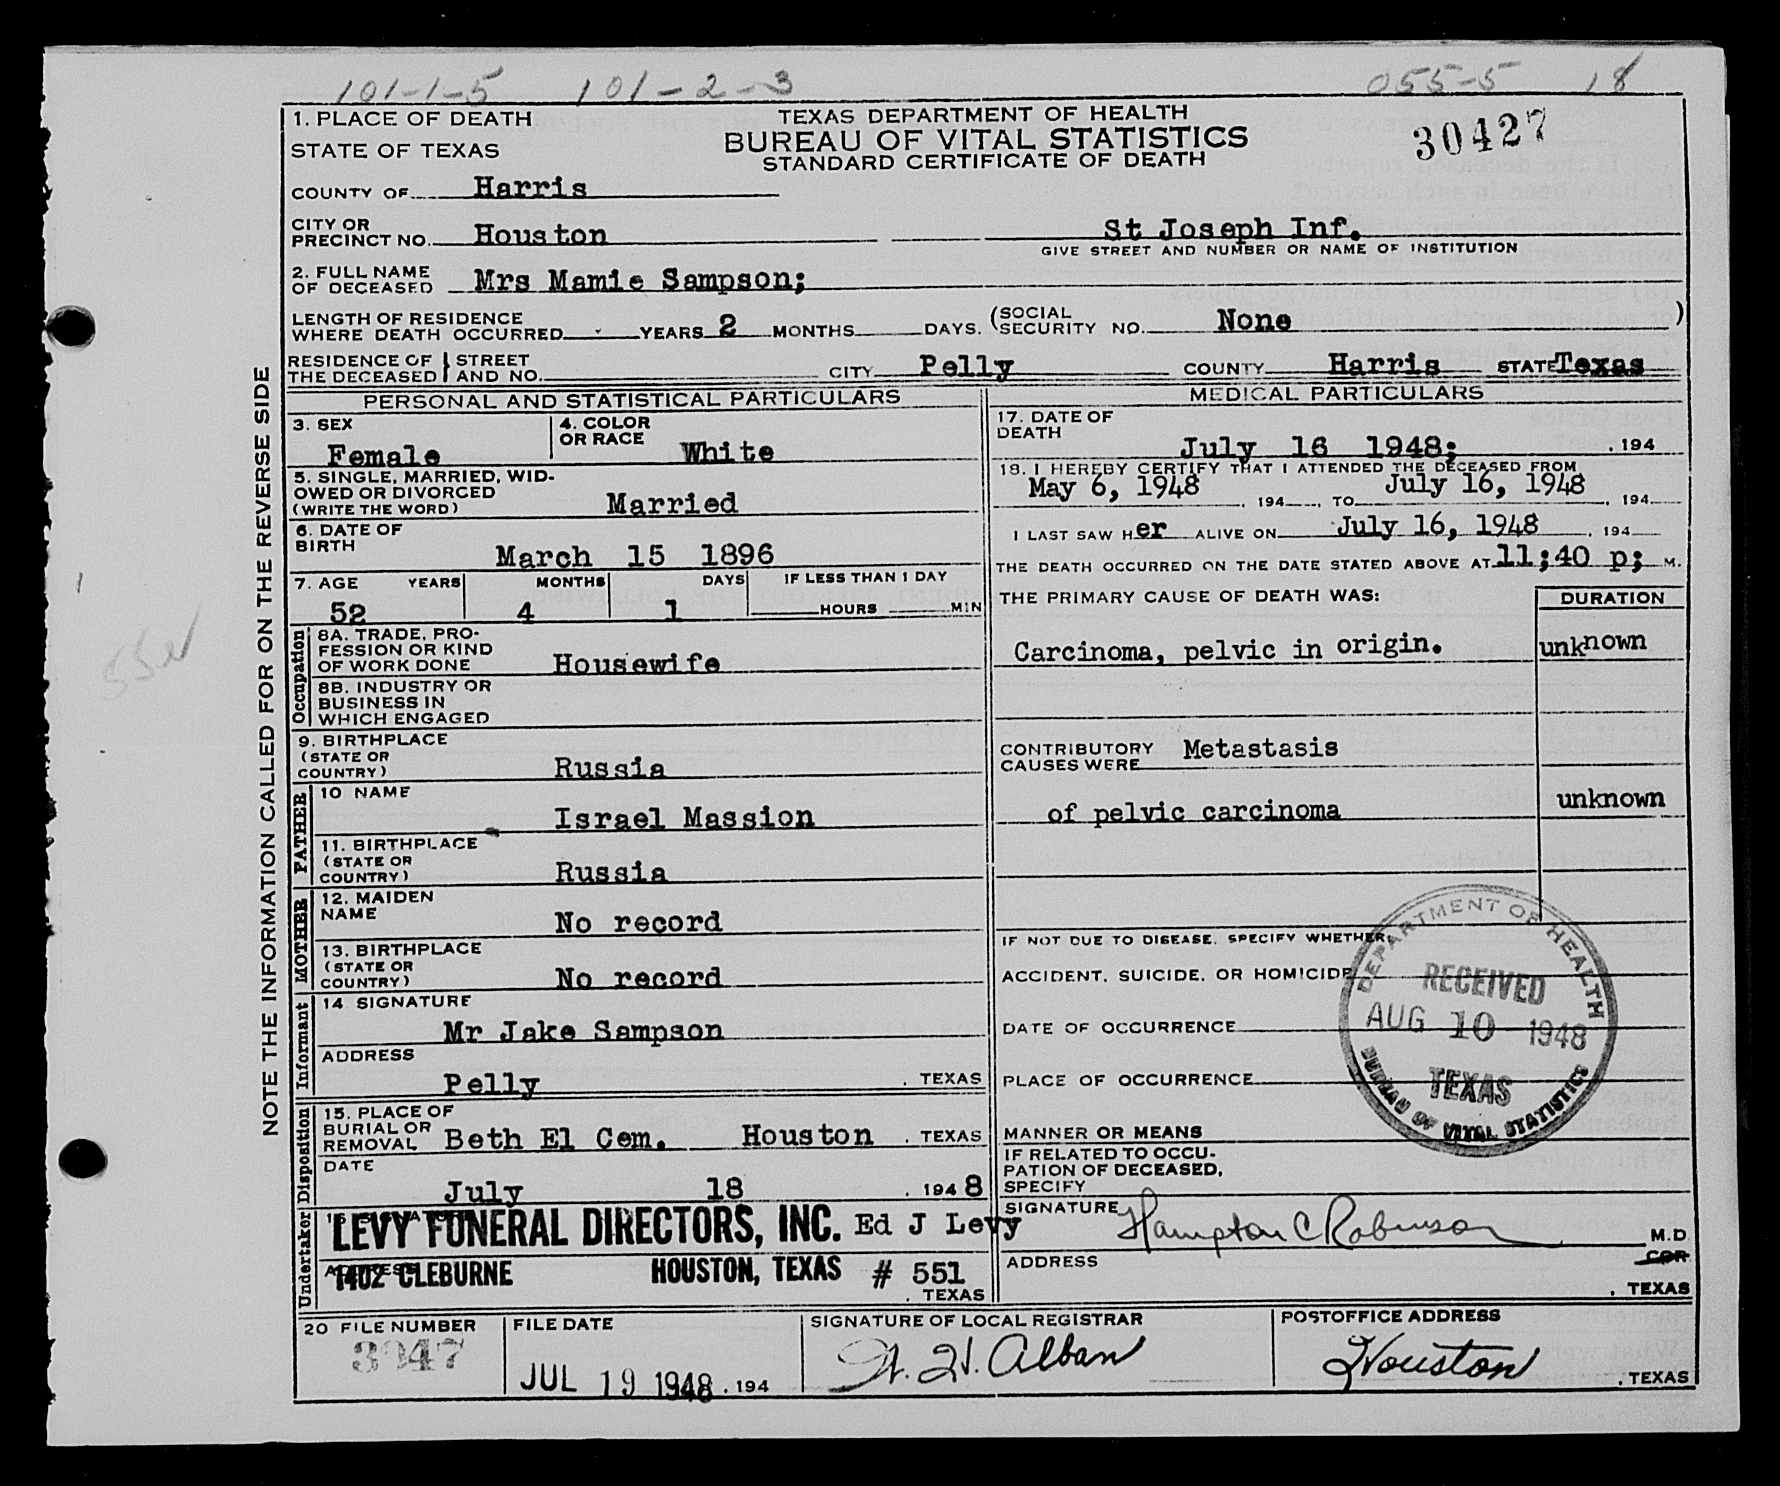 101-1-5 101-2-3 055-5 18
1. PLACE OF DEATH
STATE OF TEXAS
TEXAS DEPARTMENT OF HEALTH
BUREAU OF VITAL STATISTICS
STANDARD CERTIFICATE OF DEATH
30427
COUNTY OF Harris
CITY OR
PRECINCT NO. Houston St Joseph Inf.
GIVE STREET AND NUMBER OR NAME OF INSTITUTION
2. FULL NAME
OF DECEASED Mrs Mamie Sampson;
LENGTH OF RESIDENCE
WHERE DEATH OCCURRED YEARS 2 MONTHS DAYS. (SOCIAL
SECURITY NO. None )
RESIDENCE OF } STREET
THE DECEASED } AND NO. CITY Pelly COUNTY Harris STATE Texas
NOTE THE INFORMATION CALLED FOR ON THE REVERSE SIDE
PERSONAL AND STATISTICAL PARTICULARS
3. SEX
Female
4. COLOR
OR RACE White
5. SINGLE, MARRIED, WID-
OWED OR DIVORCED
(WRITE THE WORD) Married
6. DATE OF
BIRTH March 15 1896
7. AGE YEARS MONTHS DAYS IF LESS THAN 1 DAY
52 4 1 HOURS MIN
Occupation
8A. TRADE, PRO-
FESSION OR KIND
OF WORK DONE Housewife
8B. INDUSTRY OR
BUSINESS IN
WHICH ENGAGED
9. BIRTHPLACE
(STATE OR
COUNTRY) Russia
FATHER
10 NAME
Israel Massion
11. BIRTHPLACE
(STATE OR
COUNTRY) Russia
MOTHER
12. MAIDEN
NAME No record
13. BIRTHPLACE
(STATE OR
COUNTRY) No record
Informant
14 SIGNATURE
Mr Jake Sampson
ADDRESS
Pelly , TEXAS
Disposition
15. PLACE OF
BURIAL OR
REMOVAL Beth El Cem. Houston , TEXAS
DATE
July 18 , 194 8
Undertaker
LEVY FUNERAL DIRECTORS, INC. Ed J Levy
1402 CLEBURNE HOUSTON, TEXAS # 551
, TEXAS
MEDICAL PARTICULARS
17. DATE OF
DEATH July 16 1948; , 194
18. I HEREBY CERTIFY THAT I ATTENDED THE DECEASED FROM
May 6, 1948 , 194 , TO July 16, 1948 , 194
I LAST SAW H er ALIVE ON July 16, 1948 , 194
THE DEATH OCCURRED ON THE DATE STATED ABOVE AT 11;40 p; M.
THE PRIMARY CAUSE OF DEATH WAS: DURATION
Carcinoma, pelvic in origin. unknown
CONTRIBUTORY
CAUSES WERE Metastasis
of pelvic carcinoma unknown
IF NOT DUE TO DISEASE, SPECIFY WHETHER
ACCIDENT, SUICIDE, OR HOMICIDE
DATE OF OCCURRENCE
PLACE OF OCCURRENCE
MANNER OR MEANS
IF RELATED TO OCCU-
PATION OF DECEASED,
SPECIFY
DEPARTMENT OF HEALTH
RECEIVED
AUG 10 1948
TEXAS
BUREAU OF VITAL STATISTICS
SIGNATURE Hampton C Robinson M.D.
COR
ADDRESS
, TEXAS
20 FILE NUMBER
3947
FILE DATE
JUL 19 1948 , 194
SIGNATURE OF LOCAL REGISTRAR
W. H. Alban
POSTOFFICE ADDRESS
Houston , TEXAS